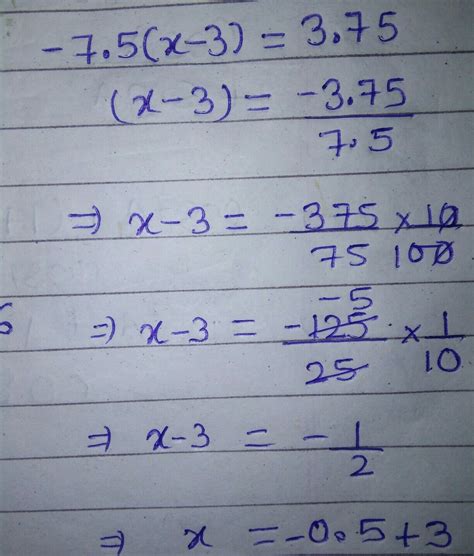 -7.5(x-3) = 3.75
(x-3) = -3.75/7.5
⇒ x-3 = -375/75 × 10/100
⇒ x-3 = -125/25 × 1/10 -5
⇒ x-3 = -1/2
⇒ x = -0.5+3